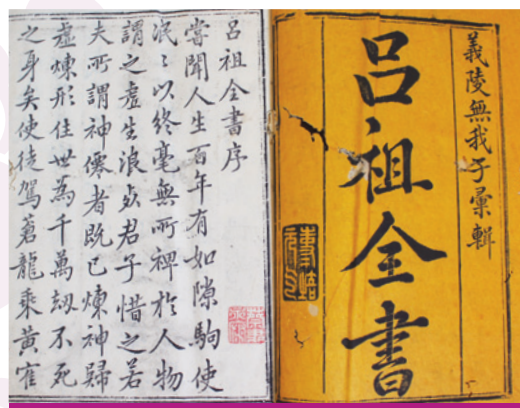 義陵無我子彙輯
呂祖全書
呂祖全書序
嘗聞人生百年有如隙駒使
泯〻以終毫無所裨於人物
謂之虛生浪死君子惜之若
夫所謂神僊者既已煉神歸
虛煉形住世為千萬刼不死
之身矣使徒駕蒼龍乘黃隺